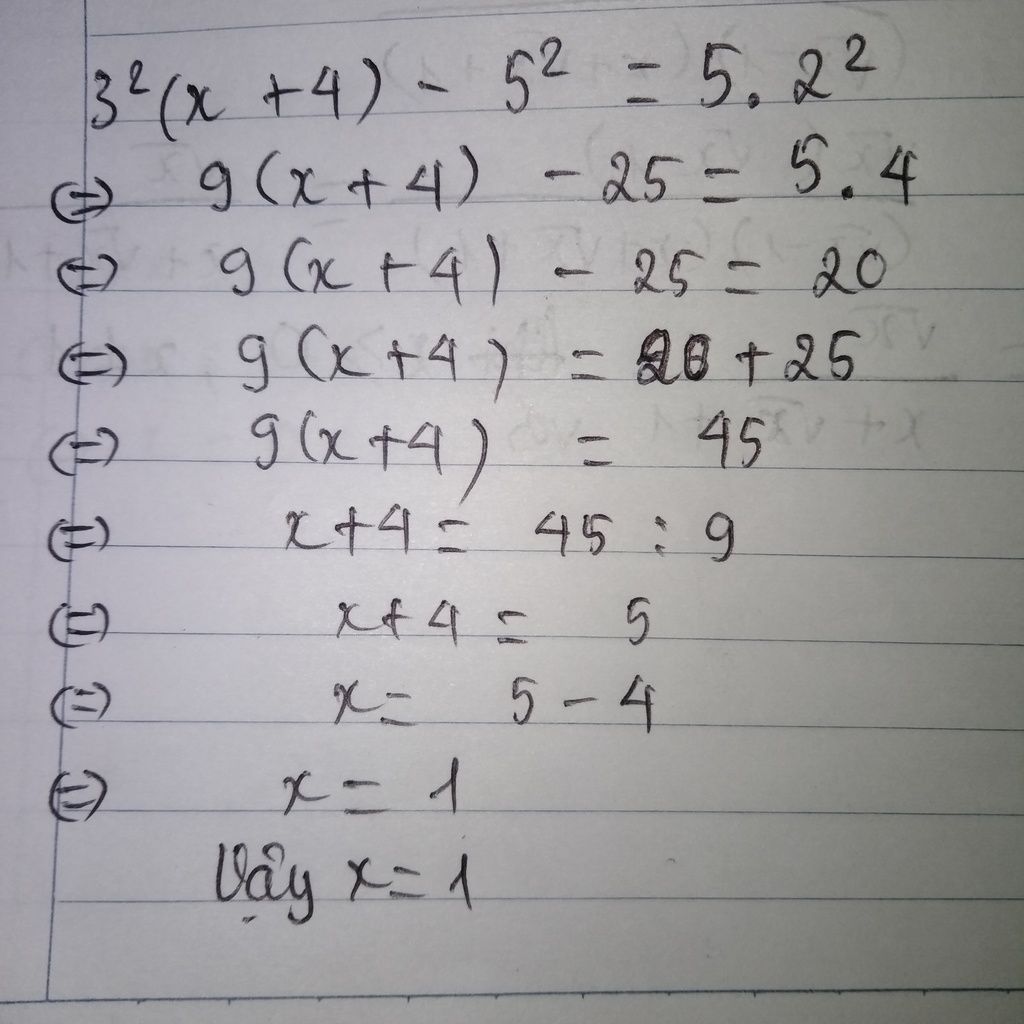 3²(x + 4) - 5² = 5.2²
(=) 9(x + 4) - 25 = 5.4
(=) 9(x + 4) - 25 = 20
(=) 9(x + 4) = 20 + 25
(=) 9(x + 4) = 45
(=) x + 4 = 45 : 9
(=) x + 4 = 5
(=) x = 5 - 4
(=) x = 1
Vậy x = 1